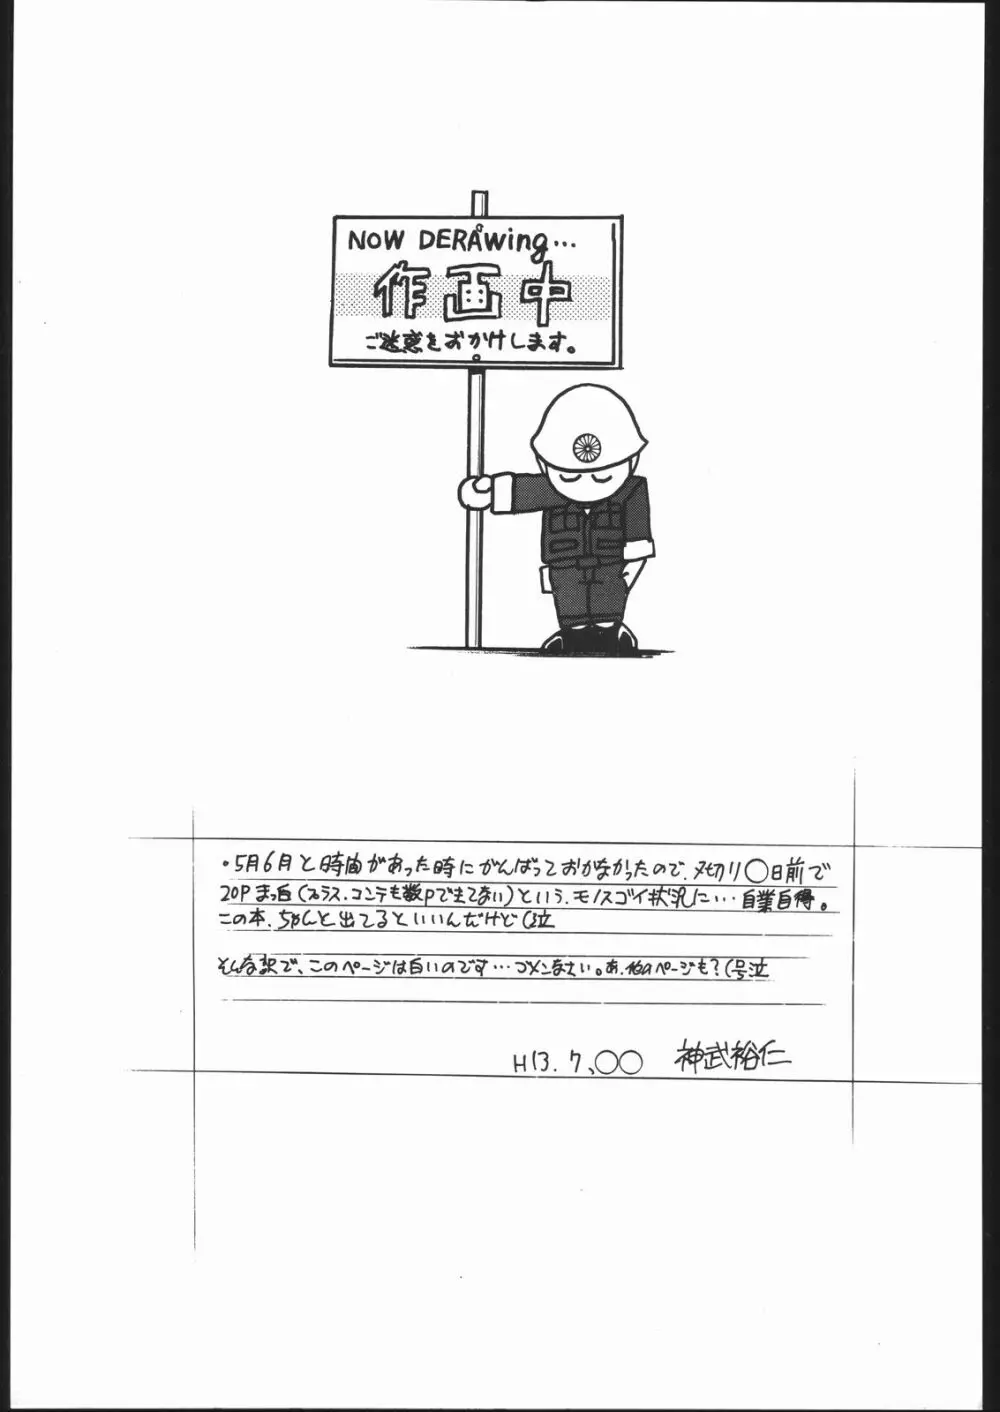 NOW DERAwing...
作画中
ご迷惑をおかけします。
・5月6月と時間があった時にがんばっておかなかったので、〆切リ〇日前で
20Pまっ白(プラス、コンテも数Pできてない)という、モノスゴイ状況に…自業自得。
この本、ちゃんと出てるといいんだけど(泣
そんな訳で、このページは白いのです…ゴメンなさい。あ、他のページも?(号泣
H13.7、〇〇 神武裕仁